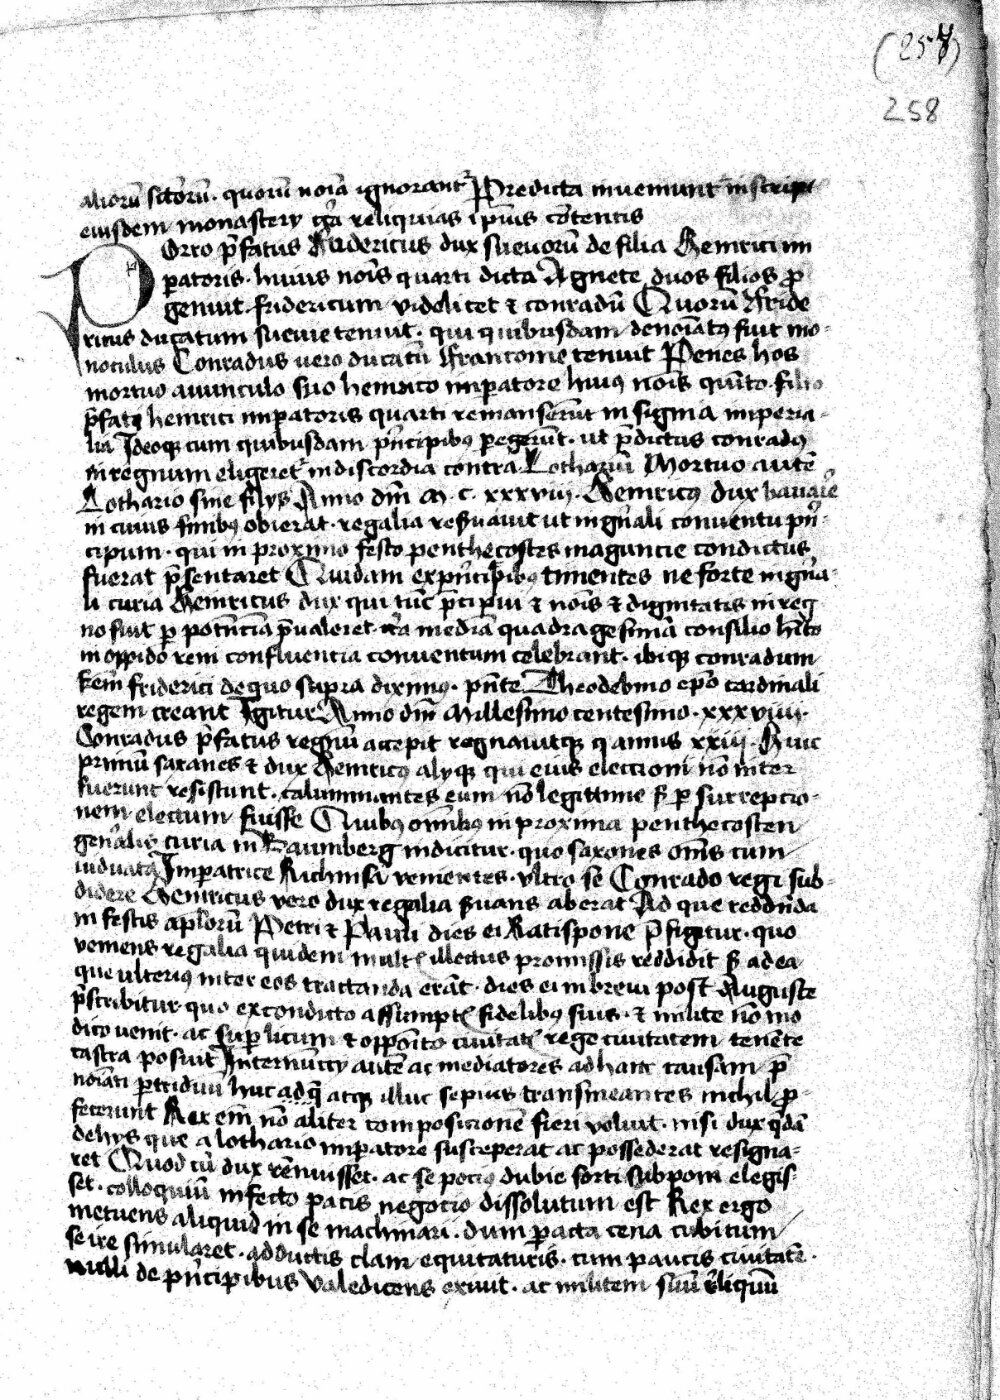 (257)
258
aliorū sctorū · quorū noīa ignorant^r Predicta inveniunt^r in script
eiusdem monastery circa reliquias ipius cōtentis
Orro p̄fatus Fridericus dux suevorū de filia Henrici im
patoris · huius noīs quarti dicta Agnete duos filios p
geniut · fridericum videlicet & conradū Quorū Fride
ricus ducatum suevie tenuit · qui a quibusdam denoīatꝰ fuit mo-
noculus Conradus vero ducatū Franconie tenuit Penes hos
mortuo avunculo suo henrico impatore huiꝰ noīs quīto · filio
p̄fati henrici impatoris quarti remanserūt in signia imperia-
lia Ideoqꝫ cum quibusdam p̄ncipibꝰ pegerūt · ut p̄dictus conradꝰ
in regnum eligeret^r in discordia contra Lothariū Mortuo autē
Lothario sine filys Anno dm̄ m · c · xxxviii · Henricꝰ dux bavarie
in cuius finibꝰ obierat · regalia reservavit ut in gn̄ali conventu pn̄-
cipum · qui in proximo festo penthecostes maguncie condictus
fuerat p̄sentaret Quidam ex pn̄cipibꝰ timentes ne forte in gn̄a-
li curia Henricus dux qui tūc p̄cipui & noīs & dignitatis in reg
no fuit p potn̄ciā p̄valeret · circa mediā quadragesimā consilio hīto
in oppido reni confluencia conventum celebrant · ibiqꝫ conradum
frēm friderici de quo supra diximꝰ · pn̄te Theodewino epō cardinali
regem creant Igitur Anno dm̄ Millesimo centesimo · xxxviii ·
Conradus p̄fatus regnū accepit regnavitqꝫ annis xxiii · Huic
primū saxones & dux Henricꝰ alyqꝫ qui eius eleccioni nō inter
fuerunt resistunt · calumniantes eum nō legittime s̄ p surrepcio-
nem electum fuisse Quibꝰ omībus in proxima penthecosten
gen̄alis curia in Baumberg indicitur · quo saxones om̄s cum
viduata Impatrice Richinsa venientes · ultro se Conrado regi sub-
didere Henricus vero dux regalia s̄vans aberat Ad que reddn̄da
in festis aplorū Petri & Pauli dies ei Ratispone p̄figitur · quo
veniens regalia quidem mult^s illectus promissis reddidit s̄ ad ea
que ulterius inter eos tractanda erāt · dies ei in brevi post Auguste
p̄scribitur · quo ex condicto assumpt^s fidelibꝰ suis · & milite nō mo
dico venit · ac sup licum & opposito civitat^s rege civitatem tenēte
castra posuit Internūccy autē ac mediatores ad hanc causam p̄
noīati p triduū huc adqꝫ atqꝫ illuc sepius transmeantes nichil p-
fecerunt Rex em̄ nō aliter composicionē fieri voluit · nisi dux qdā
de hys que a lothario impatore susceperat ac possederat resigna-
ret Quod cū dux rēnuisset · ac se pocius dubie sorti subponi elegis-
set · colloquiū infecto pacis negocio dissolutum est Rex ergo
metuens aliquid in se machinari · dum pacta cena cubitum
se ire simularet · adductis clam equitaturis · cum paucis civitatē ·
nulli de pn̄cipibus valedicens exiuit · ac militem suū reliquū